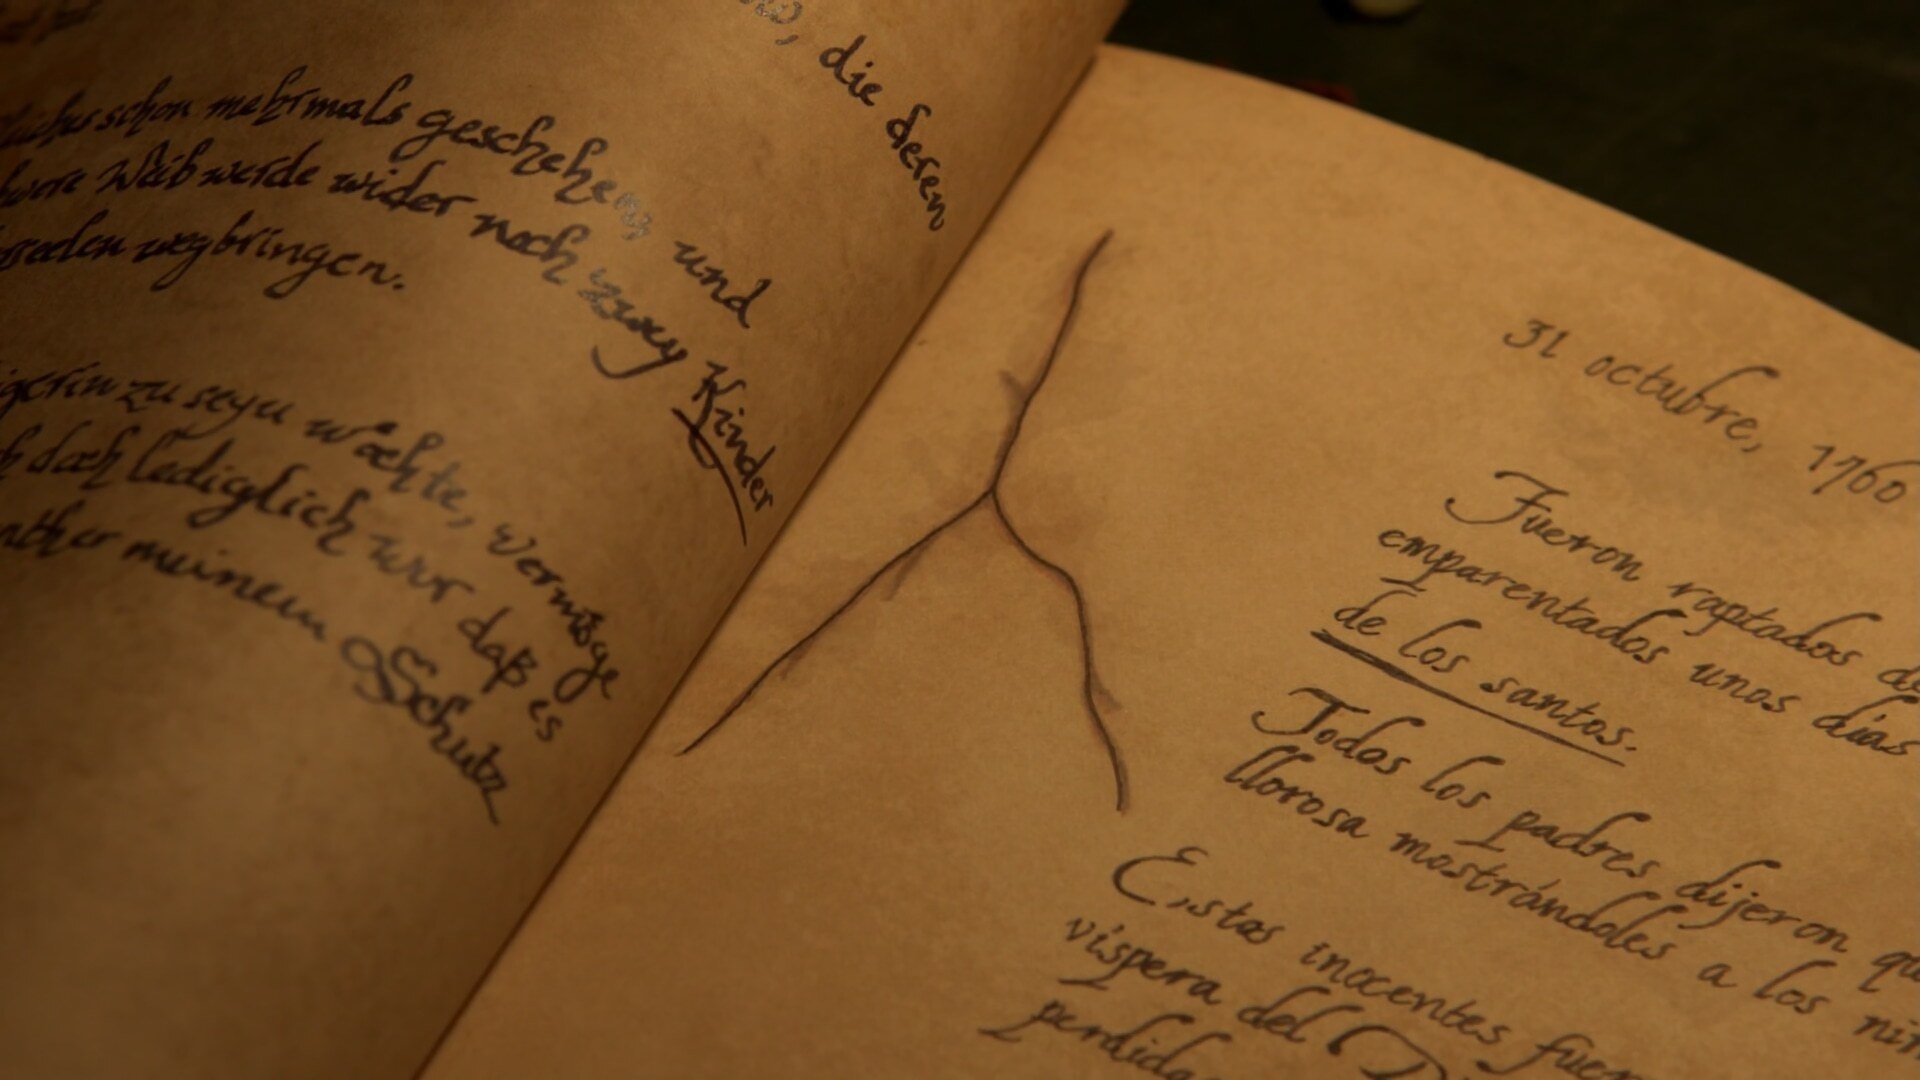 die deren
schon mehrmals geschehen, und
Weib werde wider noch zwey Kinder
wegbringen.
zu seyn wachte, vermöge
doch lediglich war daß es
meinem Schutz
31 octubre, 1760
Fueron raptados
emparentados unos días
de los santos.
Todos los padres dijeron
llorosa mostrándoles a los
Estas inocentes
víspera del